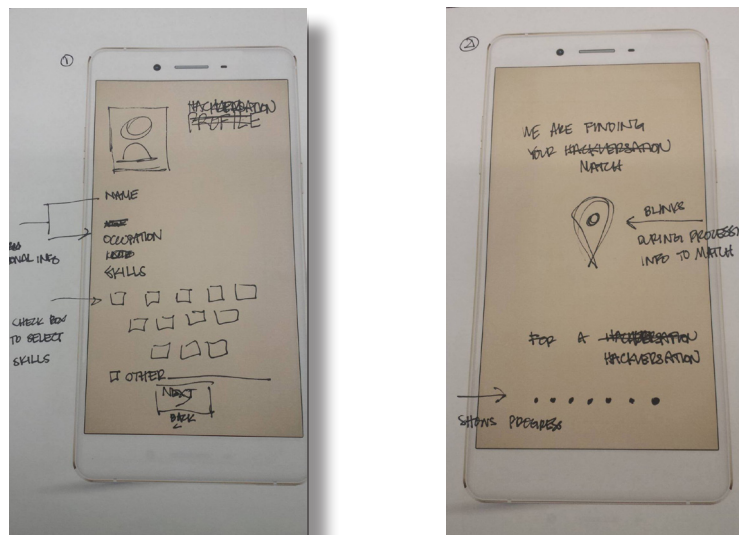 1
PROFILE
NAME
OCCUPATION
SKILLS
ONAL INFO
CHECK BOX
TO SELECT
SKILLS
OTHER
NEXT
BACK
2
WE ARE FINDING
YOUR HACKVERSATION
MATCH
BLINKS
DURING PROCESS
INFO TO MATCH
FOR A
HACKVERSATION
SHOWS PROGRESS